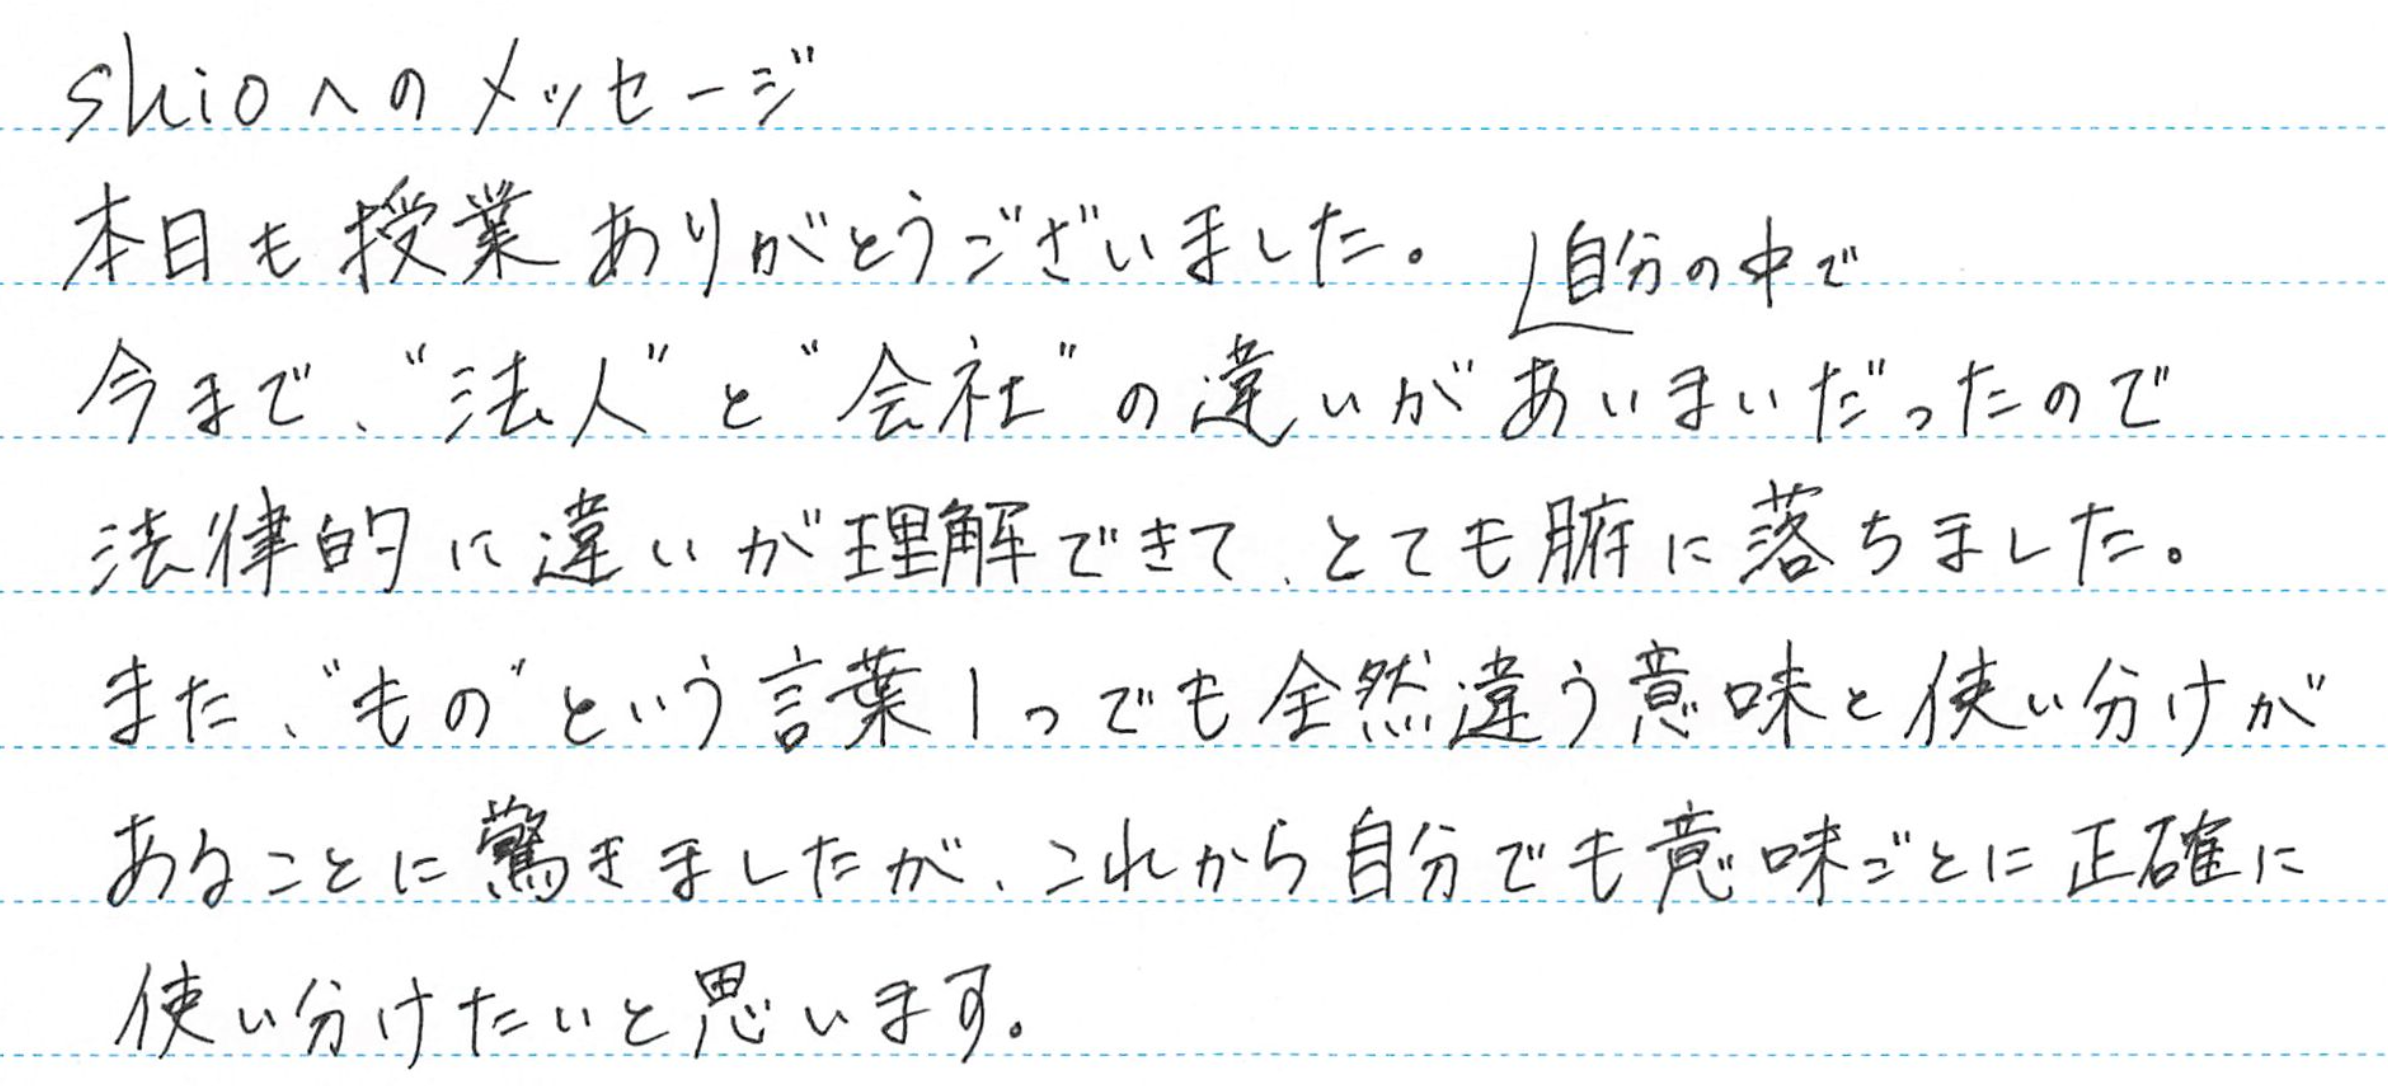 shioへのメッセージ
本日も授業ありがとうございました。
自分の中で
今まで、"法人"と"会社"の違いがあいまいだったので
法律的に違いが理解できて、とても腑に落ちました。
また、"もの"という言葉1つでも全然違う意味と使い分けが
あることに驚きましたが、これから自分でも意味ごとに正確に
使い分けたいと思います。